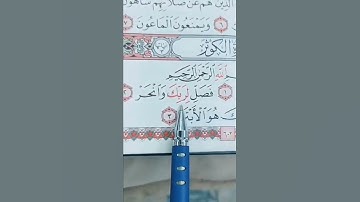 الَّذِينَ هُمْ عَن صَلَاتِهِمْ سَاهُونَ
وَيَمْنَعُونَ الْمَاعُونَ ٧
الْكَوْثَرِ
اللَّهِ الرَّحْمَٰنِ الرَّحِيمِ
١ فَصَلِّ لِرَبِّكَ وَانْحَرْ ٢
هُوَ الْأَبْتَرُ ٣